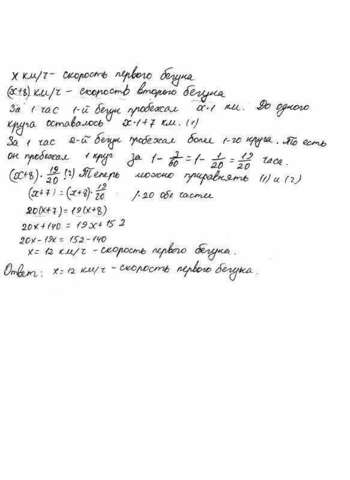 x км/ч - скорость первого бегуна
(x+8) км/ч - скорость второго бегуна
За 1 час 1-й бегун пробежал x·1 км. До одного
круга оставалось x·1+7 км. (1)
За 1 час 2-й бегун пробежал более 1-го круга. То есть
он пробежал 1 круг за 1- 3/60 = 1- 1/20 = 19/20 часа.
(x+8)· 19/20 (2) Теперь можно приравнять (1) и (2)
(x+7)=(x+8)· 19/20 /·20 обе части
20(x+7)=19(x+8)
20x+140=19x+152
20x-19x=152-140
x=12 км/ч - скорость первого бегуна.
Ответ: x=12 км/ч - скорость первого бегуна.